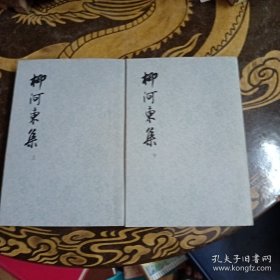 柳河東集
上
柳河東集
下
孔夫子旧书网